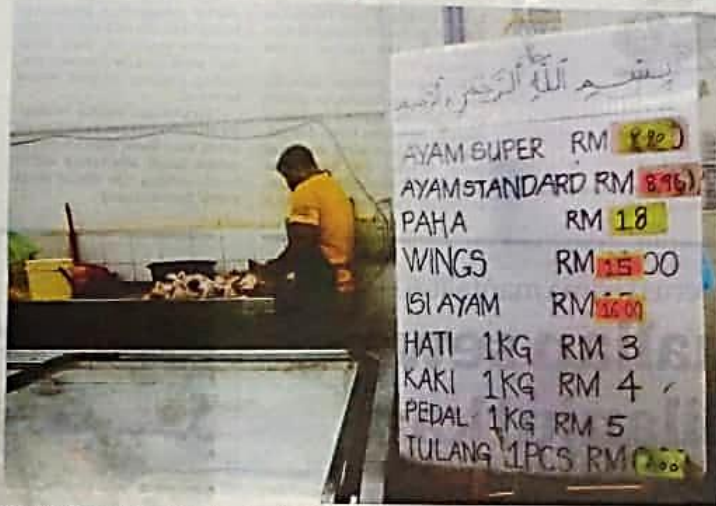 بسم الله الرحمن الرحيم
AYAM SUPER RM 8.80
AYAM STANDARD RM 8.96
PAHA RM 18
WINGS RM 15 00
ISI AYAM RM 16 00
HATI 1KG RM 3
KAKI 1KG RM 4
PEDAL 1KG RM 5
TULANG 1PCS RM